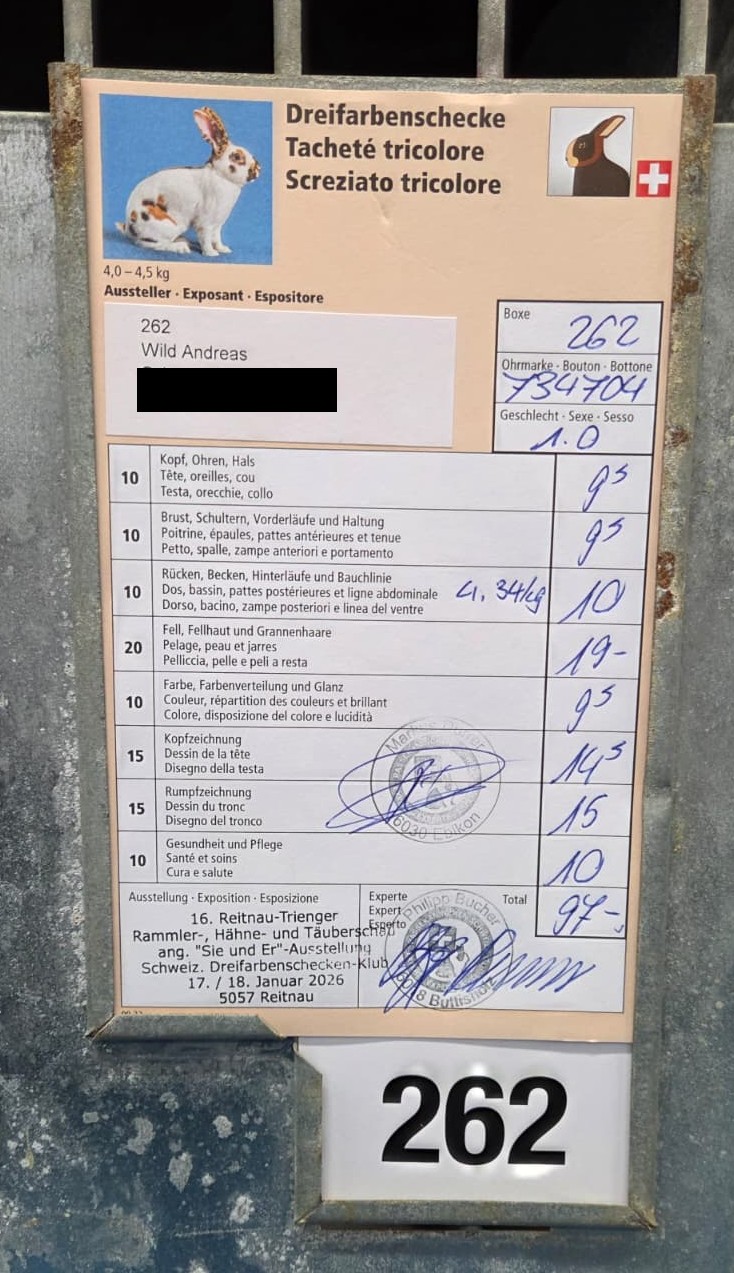 Dreifarbenschecke
Tacheté tricolore
Screziato tricolore
4,0 – 4,5 kg
Aussteller · Exposant · Espositore
262
Wild Andreas
Boxe
262
Ohrmarke · Bouton · Bottone
734704
Geschlecht · Sexe · Sesso
1.0
10
Kopf, Ohren, Hals
Tête, oreilles, cou
Testa, orecchie, collo
9⁵
10
Brust, Schultern, Vorderläufe und Haltung
Poitrine, épaules, pattes antérieures et tenue
Petto, spalle, zampe anteriori e portamento
9⁵
10
Rücken, Becken, Hinterläufe und Bauchlinie
Dos, bassin, pattes postérieures et ligne abdominale
Dorso, bacino, zampe posteriori e linea del ventre
4.34kg
10
20
Fell, Fellhaut und Grannenhaare
Pelage, peau et jarres
Pelliccia, pelle e peli a resta
19-
10
Farbe, Farbenverteilung und Glanz
Couleur, répartition des couleurs et brillant
Colore, disposizione del colore e lucidità
9⁵
15
Kopfzeichnung
Dessin de la tête
Disegno della testa
14⁵
15
Rumpfzeichnung
Dessin du tronc
Disegno del tronco
15
10
Gesundheit und Pflege
Santé et soins
Cura e salute
10
6030 Ebikon
Ausstellung · Exposition · Esposizione
16. Reitnau-Trienger
Rammler-, Hähne- und Täuberschau
ang. "Sie und Er"-Ausstellung
Schweiz. Dreifarbenschecken-Klub
17. / 18. Januar 2026
5057 Reitnau
Experte
Expert
Esperto
Philipp Bucher
Buttisholz
Total
97-
262